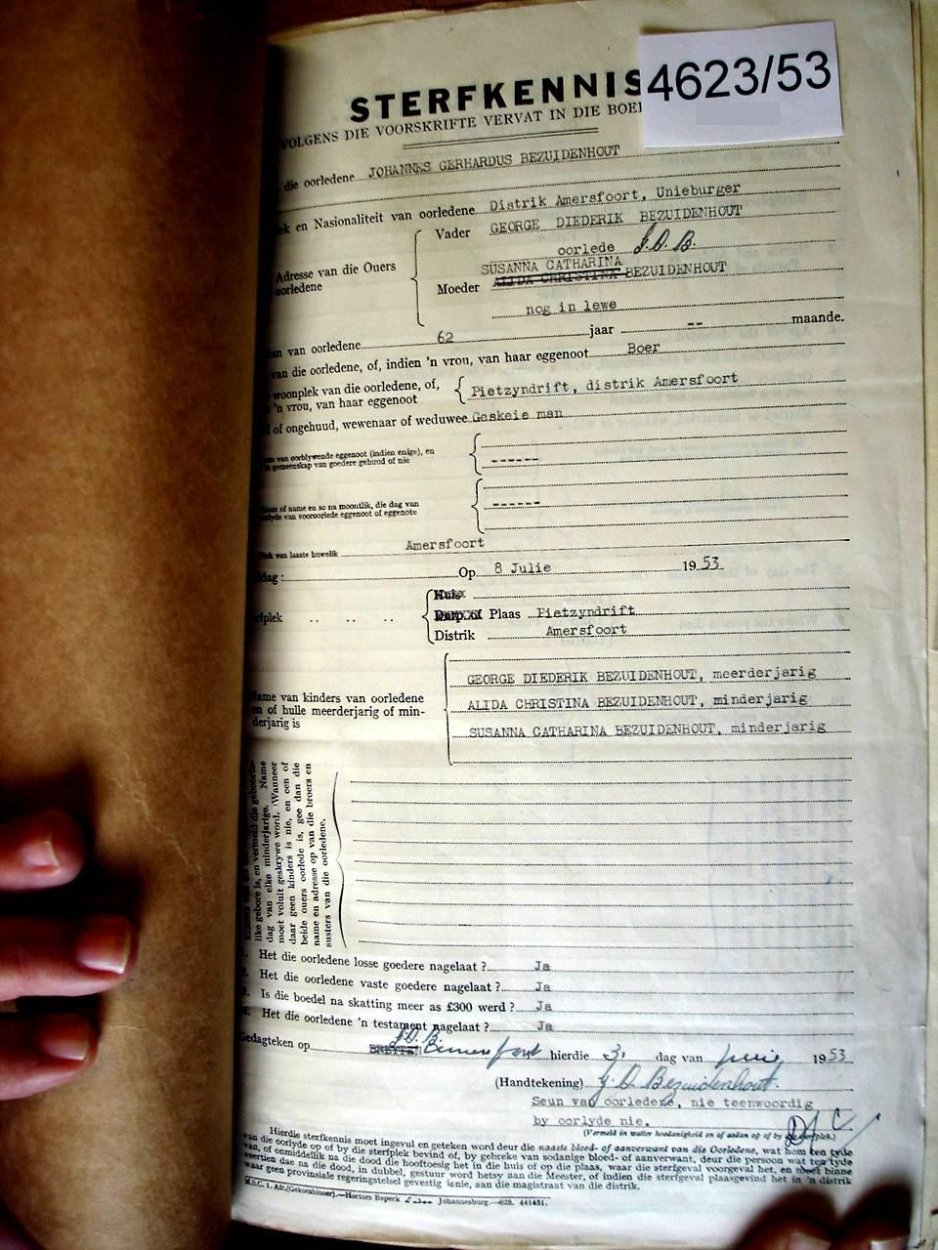 4623/53
STERFKENNIS
VOLGENS DIE VOORSKRIFTE VERVAT IN DIE BOE
die oorledene JOHANNES GERHARDUS BEZUIDENHOUT
ek en Nasionaliteit van oorledene Distrik Amersfoort, Unieburger
Vader GEORGE DIEDERIK BEZUIDENHOUT
oorlede J.D.B.
Adresse van die Ouers
oorledene
SUSANNA CATHARINA
Moeder ALIDA CHRISTINA BEZUIDENHOUT
nog in lewe
van oorledene 62 jaar -- maande.
van die oorledene, of, indien 'n vrou, van haar eggenoot Boer
woonplek van die oorledene, of,
'n vrou, van haar eggenoot
Pietzyndrift, distrik Amersfoort
of ongehuud, wewenaar of weduwee Geskeie man
van oorblywende eggenoot (indien enige), en
gemeenskap van goedere gehuud of nie
------
of name en so na moontlik, die dag van
van vooroorlede eggenoot of eggenote
------
van laaste huwelik Amersfoort
dag: Op 8 Julie 1953
Huis
Dorp of Plaas Pietzyndrift
Distrik Amersfoort
Name van kinders van oorledene
en of hulle meerderjarig of min-
derjarig is
GEORGE DIEDERIK BEZUIDENHOUT, meerderjarig
ALIDA CHRISTINA BEZUIDENHOUT, minderjarig
SUSANNA CATHARINA BEZUIDENHOUT, minderjarig
like gebore is, en vermeld die geboorte-
dag van elke minderjarige. Name
moet voluit geskrywe word. Wanneer
daar geen kinders is nie, en een of
beide ouers oorlede is, gee dan die
name en adresse op van die broers en
susters van die oorledene.
Het die oorledene losse goedere nagelaat? Ja
Het die oorledene vaste goedere nagelaat? Ja
Is die boedel na skatting meer as £300 werd? Ja
Het die oorledene 'n testament nagelaat? Ja
Gedagteken op hierdie dag van 1953
(Handtekening) J. D. Bezuidenhout.
Seun van oorledene, nie teenwoordig
by oorlyde nie.
(Vermeld in watter hoedanigheid en of aldan op of by die sterfplek.)
Hierdie sterfkennis moet ingevul en geteken word deur die naaste bloed- of aanverwant van die Oorledene, wat ten tyde
van die oorlyde op of by die sterfplek bevind of, by gebreke van sodanige bloed- of aanverwant, deur die persoon wat ten tyde
van, of onmiddellik na die dood die hooftoesig het in die huis of op die plaas, waar die sterfgeval voorgeval het, en moet binne
veertien dae na die dood, in dubbel, gestuur word hetsy aan die Meester, of indien die sterfgeval plaasgevind het in 'n distrik
waar geen provinsiale regeringsetel gevestig is nie, aan die magistraat van die distrik.
M.S.C. 1. Afr. Hortors Beperk Johannesburg.—628. 441451.